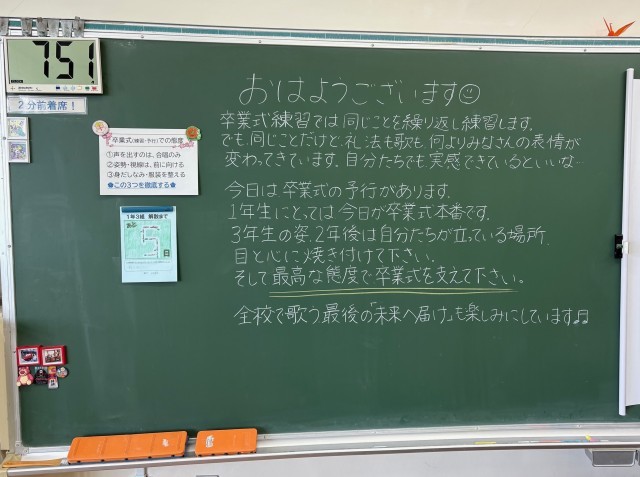 7:51
2分前着席!
卒業式(練習・予行)での態度
①声を出すのは、合唱のみ
②姿勢・視線は、前に向ける
③身だしなみ・服装を整える
★この3つを徹底する★
1年3組 解散まで
あと
5
日
おはようございます☺
卒業式練習では同じことを繰り返し練習します。
でも、同じことだけど、礼法も歌も、何よりみなさんの表情が
変わってきています。自分たちでも実感できているといいな…
今日は卒業式の予行があります。
1年生にとっては今日が卒業式本番です。
3年生の姿、2年後は自分たちが立っている場所。
目と心に焼き付けて下さい。
そして最高な態度で卒業式を支えて下さい。
全校で歌う最後の「未来へ届け」も楽しみにしています♫